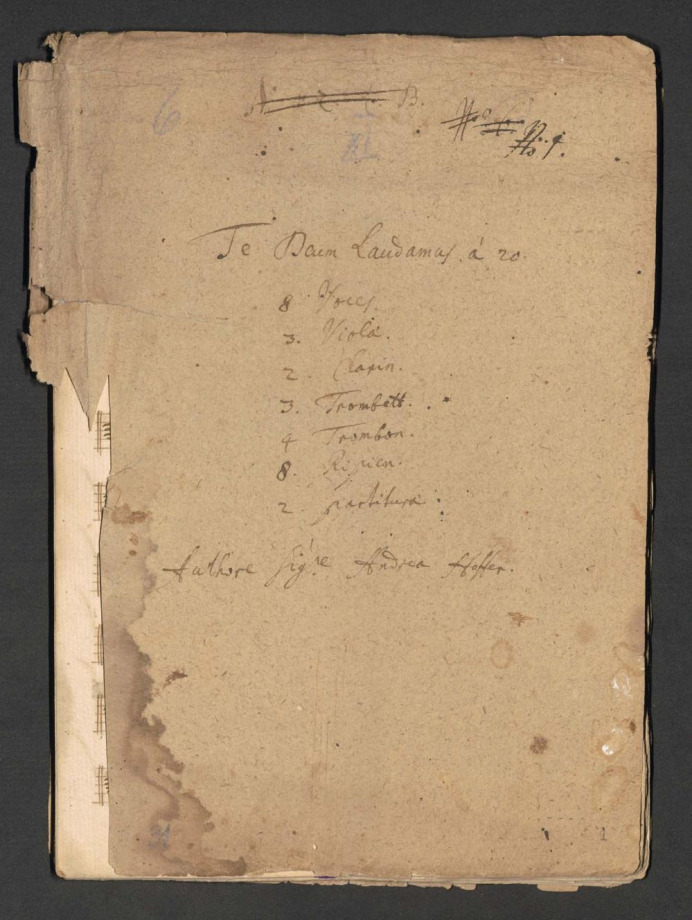 6
B.
No. 4.
Te Deum Laudamus. à 20.
8 Voces.
3. Viola.
2. Clarin.
3. Trombett.
4 Trombon.
8. Ripien.
2 partitura
Authore Sigre Andrea Hoffer.
1